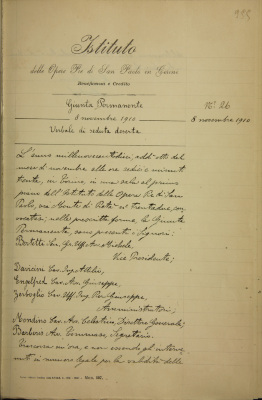 195
Istituto
delle Opere Pie di San Paolo in Torino
Beneficenza e Credito
Giunta Permanente
N.° 26
8 novembre 1910
8 novembre 1910
Verbale di seduta deserta.
L'anno millenovecentodieci, addì otto del
mese di novembre alle ore sedici e minuti
trenta, in Torino in una sala al primo
piano dell'Istituto delle Opere Pie di San
Paolo, via Monte di Pietà N.° trentadue, con
vocatasi nelle prescritte forme, la Giunta
Permanente, sono presenti i Signori:
Bertetti Cav. Gr. Uff. Av. Michele,
Vice Presidente;
Cav. Ing. Attilio,
Engelfred Cav. Av. Giuseppe,
Zerboglio Cav. Uff. Ing. Giuseppe,
Amministratori;
Mondino Cav. Avv. Celestino, Direttore Generale;
Barberis Av. Tommaso, Segretario.
Trascorsa un'ora, e non essendo gli interve
nuti in numero legale per la validità della